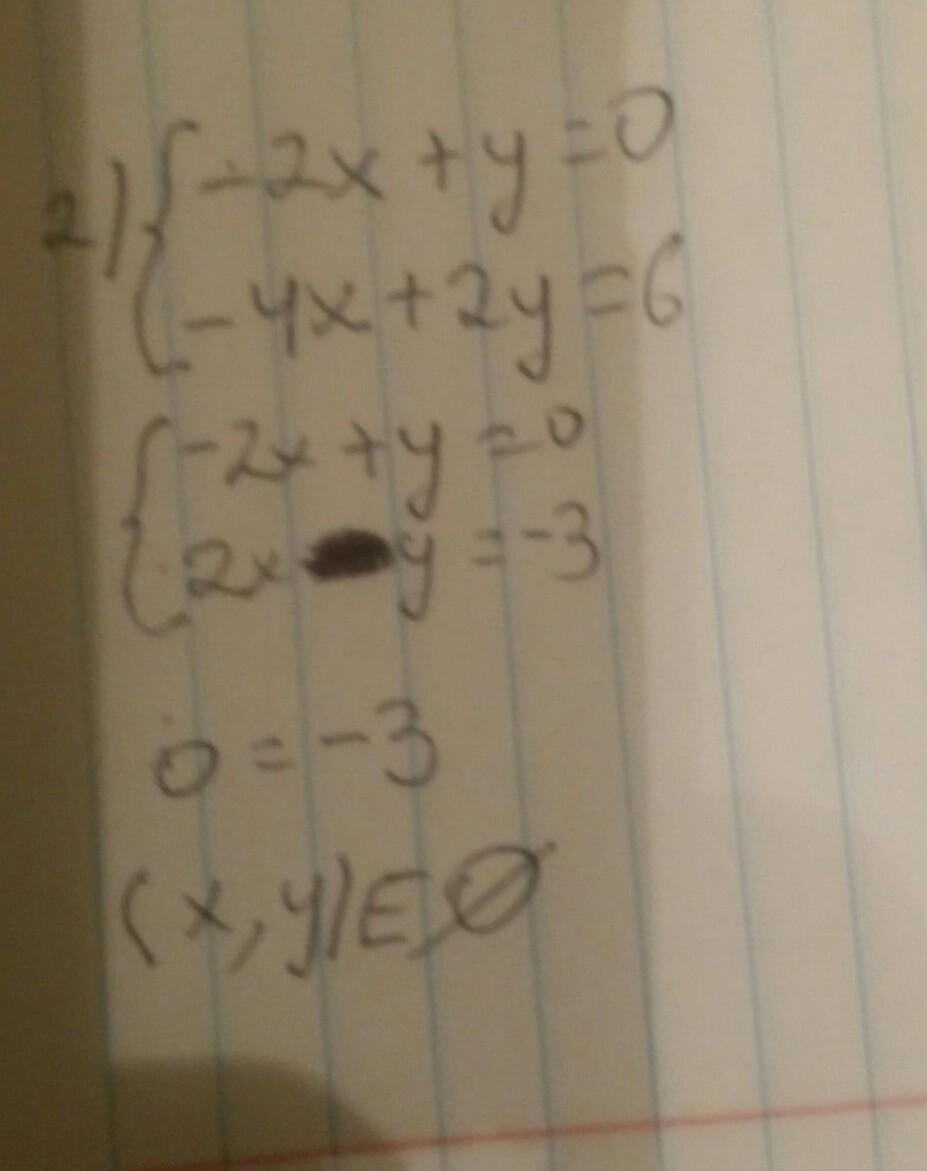 2) { -2x + y = 0
-4x + 2y = 6
{ -2x + y = 0
2x y = -3
0 = -3
(x, y) ∈ ∅